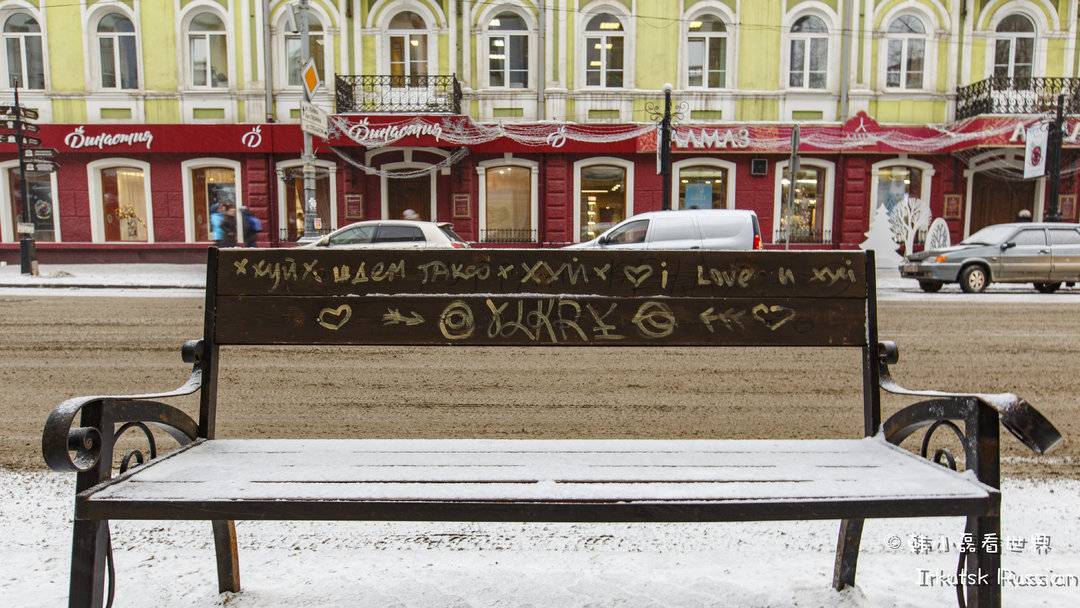 Династия
Династия
АЛМАЗ
хуй ждем такси ххй ♡ i Love и ххй
♡ YLKRY ♡
© 韩小磊看世界
Irkutsk Russian